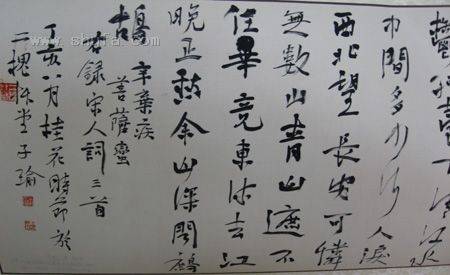 鬱孤臺下清江水
中間多少行人淚
西北望長安可憐
無數山青山遮不
住畢竟東流去江
晚正愁余山深聞鷓
鴣 辛棄疾 菩薩蠻
右錄宋人詞三首
丁亥八月桂花時節於
二槐草堂子瑜